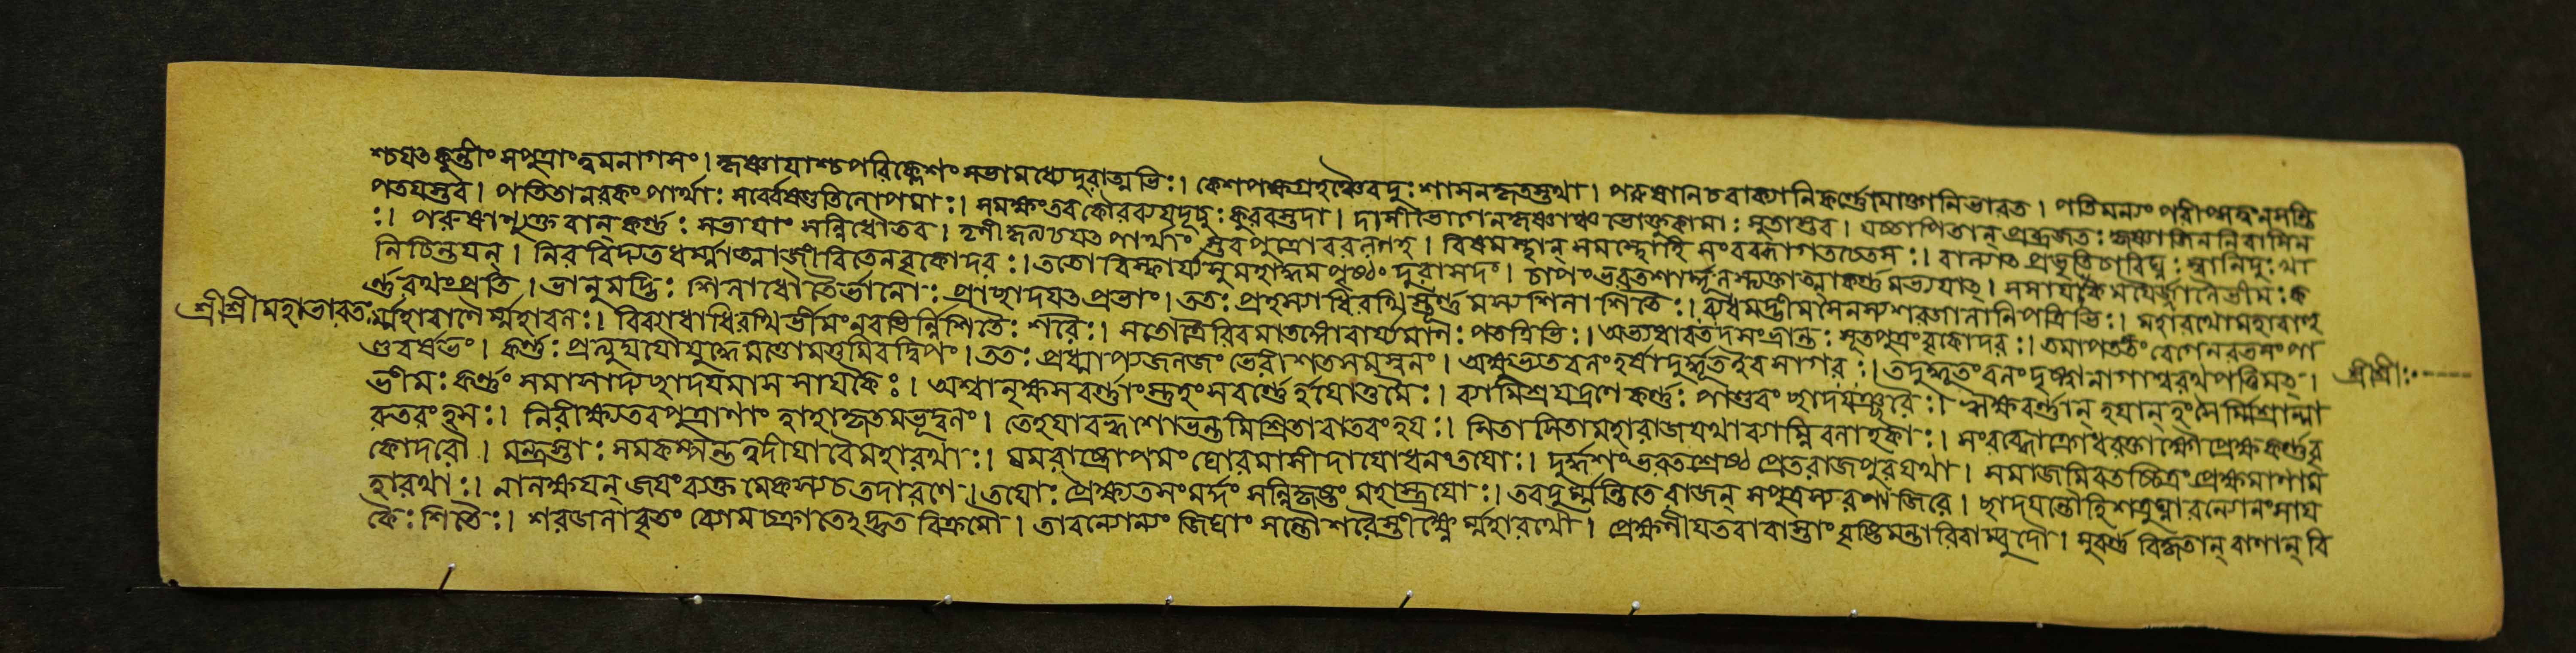 শ্চযৎ কুন্তীং সপুত্রাং ত্বমনাগসং। কৃষ্ণাযাশ্চ পরিক্লেশং সভামধ্যে দুরাত্মভিঃ। কেশপক্ষগ্রহঞ্চৈব দুঃশাসনকৃতস্তথা। পরুষানি চ বাক্যানি কর্ণ্ণে ভারত। পতিমন্যং পরীপ্সস্ব ন সন্তি
পতযস্তব। পতিতা নরকং পার্থাঃ সর্ব্বে ষণ্ডতিলোপমাঃ। সমক্ষং তব কৌরব্য যদূচুঃ কুরবস্তদা। দাসীভাগেন কৃষ্ণাঞ্চ ভোক্তুকামাঃ সুতাস্তব। যচ্চাপি তান্ প্রব্রজতঃ কৃষ্ণাজিননিবাসিন
ঃ। পরুষান্যুক্তবান্ কর্ণ্ণঃ সভাযাং সন্নিধৌ তব। তৃণীকৃত্য চ যৎ পার্থাং স্তব পুত্রো ববল্গ হ। বিষমস্থান্ সমস্থো হি সংরব্ধা গতচেতসঃ। বাল্যাৎ প্রভৃতি চারিঘ্নঃ স্বানি দুঃখা
নি চিন্তযন্। নিরবিদ্যত ধর্ম্মাত্মা জীবিতেন বৃকোদরঃ। ততো বিস্ফার্য্য সুমহদ্ধেমপৃষ্ঠং দুরাসদং। চাপং ভরতশার্দ্দূল কর্ণ্ণমভ্যযাৎ। স সাযকৈ ভীমঃ ক
র্ণ্ণরথং প্রতি। ভানুমদ্ভিঃ শিলাধৌতৈর্ভানোঃ প্রাচ্ছাদযৎ প্রভাং। ততঃ প্রহস্যাধিরথিস্তূর্ণ্ণমস্য শিলাশিতৈঃ। ব্যধমদ্ভীমসেনস্য শরজালানি পত্রিভিঃ। মহারথো মহাবাহু
শ্রীশ্রীমহাভারতঃ র্ম্মহাবাণৈর্ম্মহাবলঃ। বিব্যাধাধিরথির্ভীমং নবভির্ন্নিশিতৈঃ শরৈঃ। স তোত্রৈরিব মাতঙ্গো বার্য্যমাণঃ পতত্রিভিঃ। অভ্যধাবদসংভ্রান্তঃ সূতপুত্রং বৃকোদরঃ। তমাপতন্তং বেগেন রভসং পা
ণ্ডবর্ষভং। কর্ণ্ণঃ প্রত্যুদ্যযৌ যুদ্ধে মত্তো মত্তমিব দ্বিপং। ততঃ প্রধ্মাপ্য জলজং ভেরীশতসমস্বনং। অক্ষুভ্যত বলং হর্ষাদুদ্ধূত ইব সাগরঃ। তদুদ্ধূতং বলং দৃষ্ট্বা নাগাশ্বরথপত্তিমৎ। শ্রীশ্রীঃ
ভীমঃ কর্ণ্ণং সমাসাদ্য ছাদযমাস সাযকৈঃ। অশ্বানৃক্ষসবর্ণ্ণাংস্তু হংসবর্ণ্ণৈর্হযোত্তমৈঃ। ব্যামিশ্রযদ্রণে কর্ণ্ণঃ পাণ্ডবং ছাদযঞ্ছরৈঃ। ঋক্ষবর্ণ্ণান্ হযান্ হংসৈর্ম্মিশ্রান্মা
রুতরংহসঃ। নিরীক্ষ্য তব পুত্রাণাং হাহাকৃতমভূদ্বলং। তে হযা বহ্বশোভন্ত মিশ্রিতা বাতরংহযঃ। সিতাসিতা মহারাজ যথা ব্যোম্নি বলাহকাঃ। সংরব্ধৌ ক্রোধরক্তাক্ষৌ প্রেক্ষ্য কর্ণ্ণবৃ
কোদরৌ। সন্ত্রস্তাঃ সমকম্পন্ত ত্বদীযা বৈ মহারথাঃ। যমরাষ্ট্রোপমং ঘোরমাসীদাযোধনং তযোঃ। দুর্দ্দশং ভরতশ্রেষ্ঠ প্রেতরাজপুরং যথা। সমাজমিব তচ্চিত্রং প্রেক্ষমাণা ম
হারথাঃ। নালক্ষযন্ জযং ব্যক্তমেকস্য চ তদা রণে। তযোঃ প্রৈক্ষ্যত সংমর্দ্দং সন্নিকৃষ্টং মহাস্ত্রযোঃ। তব দুর্ম্মন্ত্রিতে রাজন্ সপুত্রস্য । ছাদযন্তৌ হি শত্রুঘ্নাবন্যোন্যং সায
কৈঃ শিতৈঃ। শরজালাবৃতং ব্যোম চক্রাতেঽদ্ভুতবিক্রমৌ। তাবন্যোন্যং জিঘাংসন্তৌ শরৈস্তীক্ষ্ণৈর্ম্মহারথৌ। প্রেক্ষণীযতরাবাস্তাং বৃষ্টিমন্তাবিবাম্বুদৌ। সুবর্ণ্ণবিকৃতান্ বাণান্ বি